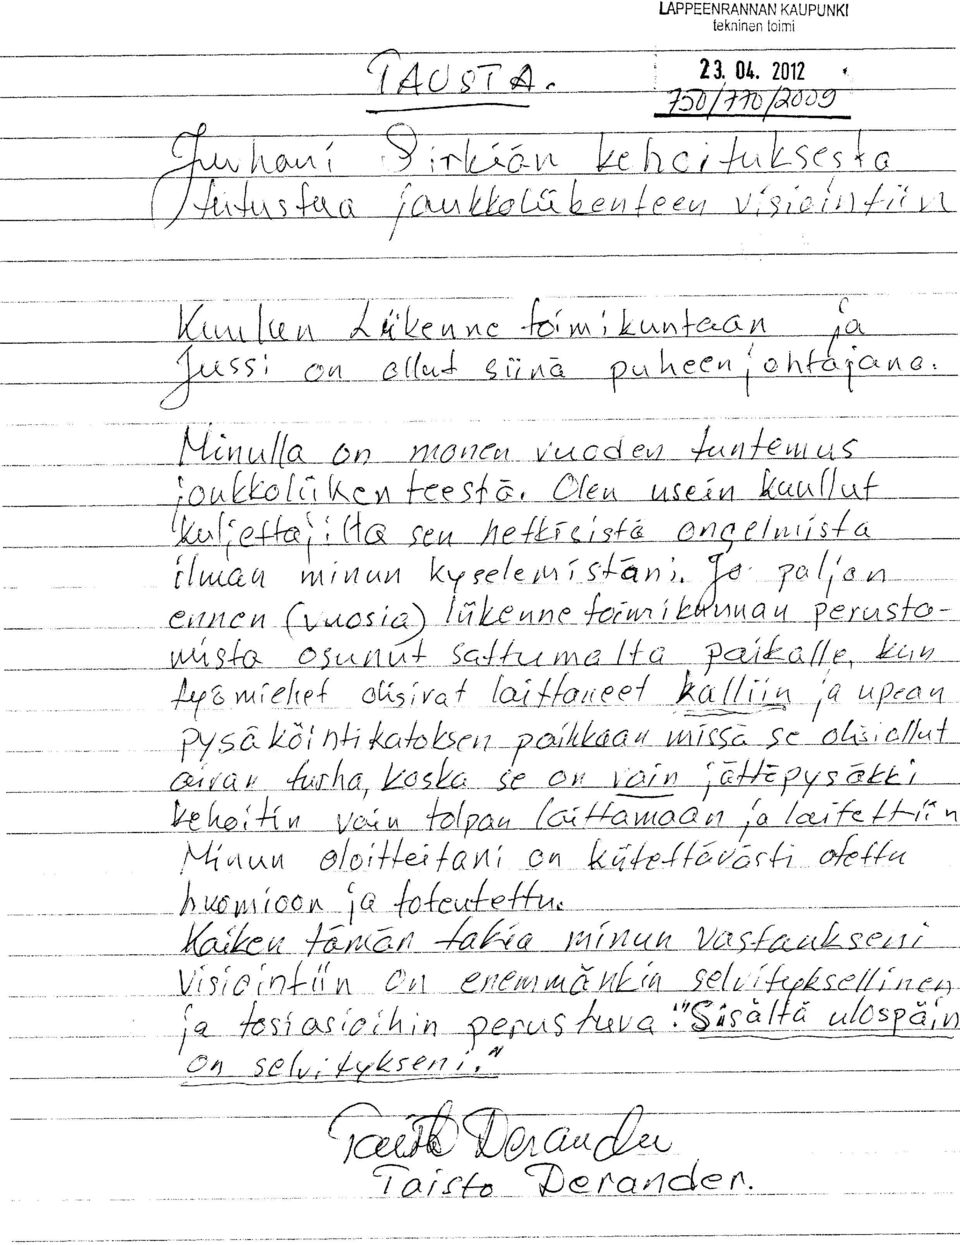 LAPPEENRANNAN KAUPUNKI
tekninen toimi
23. 04. 2012
750/770/2009
TAUSTA.
Juhani Pirkiän kehoituksesta
tutustua joukkoliikenteen visiointiin
Kuulun Liikenne toimikuntaan ja
Jussi on ollut siinä puheenjohtajana.
Minulla on monen vuoden tuntemus
joukkoliikenteestä. Olen usein kuullut
kuljettajilta sen hetkisistä ongelmista
ilman minun kyselemistäni. Jo paljon
ennen (vuosia) liikenne toimikunnan perusta-
mista osunut sattumalta paikalle, kun
työmiehet olisivat laittaneet kalliin ja upean
pysäköintikatoksen paikkaan missä se olisi ollut
aivan turha, koska se on vain jättöpysäkki
kehoitin vain tolpan laittamaan ja laitettiin
Minun aloitteitani on kiitettävästi otettu
huomioon ja toteutettu.
Kaiken tämän takia minun vastaukseni
visiointiin on enemmänkin selvityksellinen
ja tosiasioihin perustuva: "Sisältä ulospäin
on selvitykseni."
Taisto Derander
Taisto Derander.